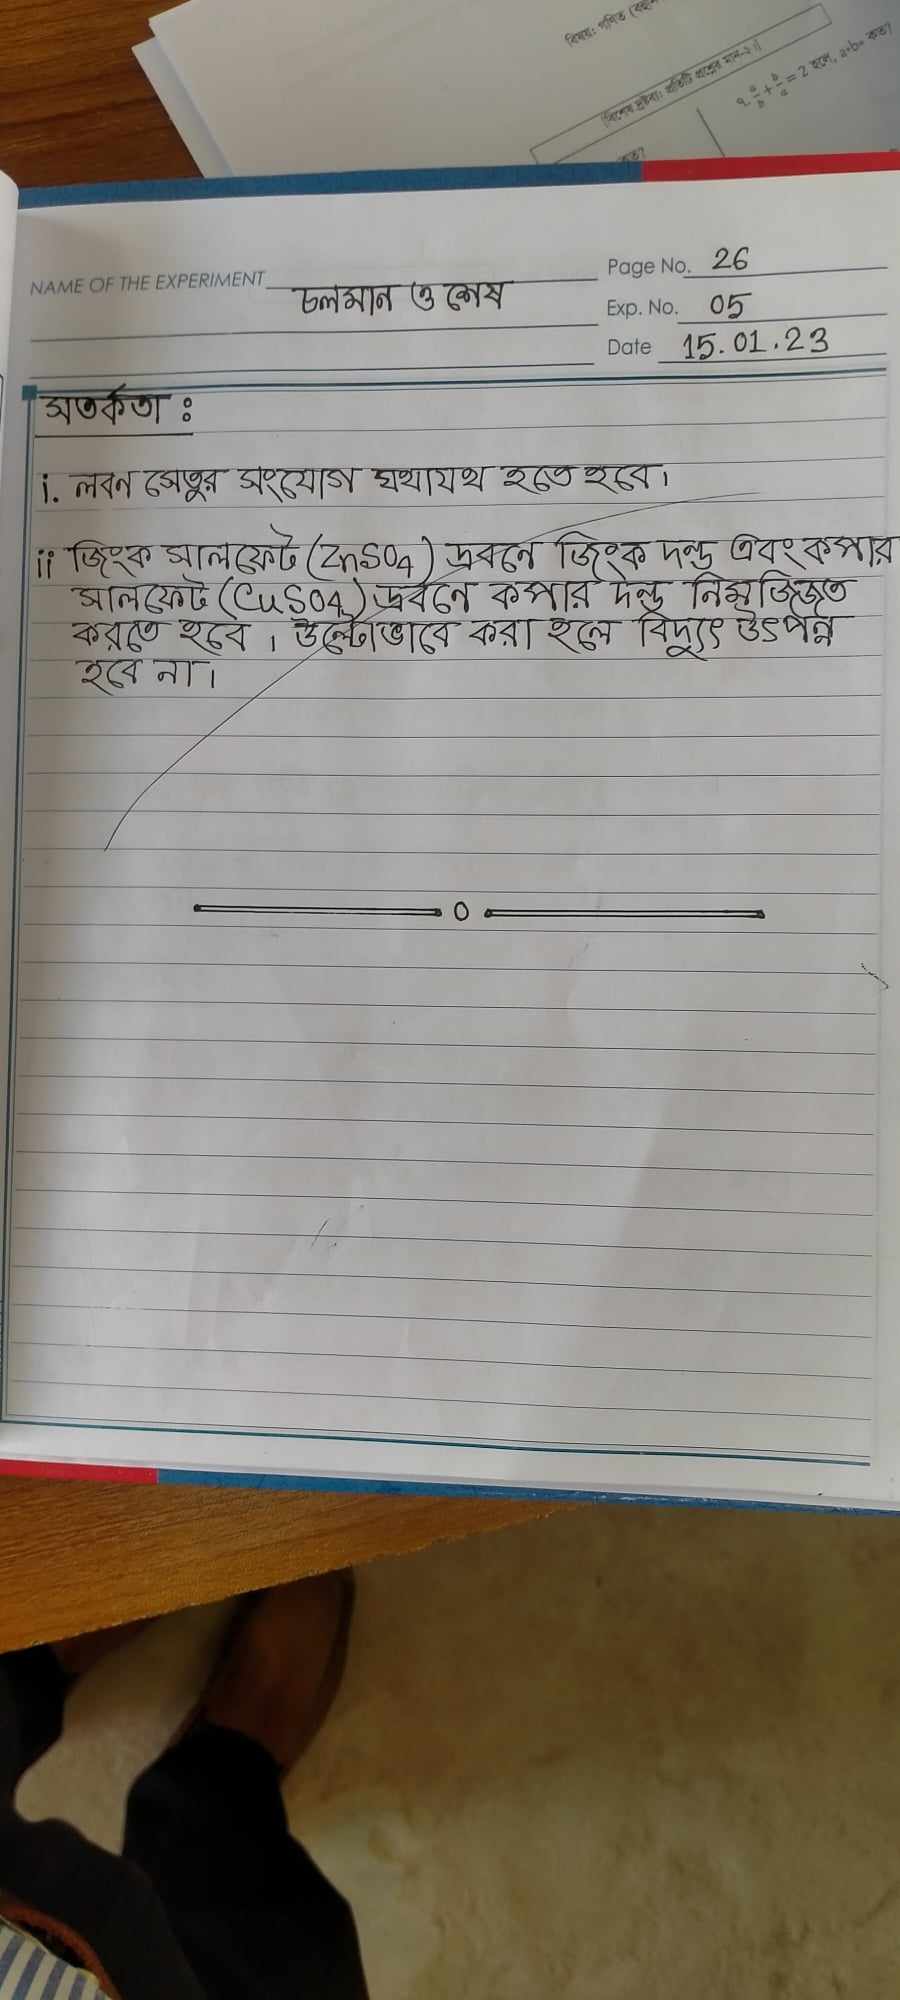 বিষয়: গণিত
বিশেষ দ্রষ্টব্য: প্রতিটি প্রশ্নের মান-২।
৭. a/b + b/a = 2 হলে, a+b= কত?
কত?
NAME OF THE EXPERIMENT চলমান ও শেষ
Page No. 26
Exp. No. 05
Date 15.01.23
সতর্কতা :
i. লবন সেতুর সংযোগ যথাযথ হতে হবে।
ii জিংক সালফেট (ZnSO4) দ্রবনে জিংক দন্ড এবং কপার
সালফেট (CuSO4) দ্রবনে কপার দন্ড নিমজ্জিত
করতে হবে। উল্টোভাবে করা হলে বিদ্যুৎ উৎপন্ন
হবে না।